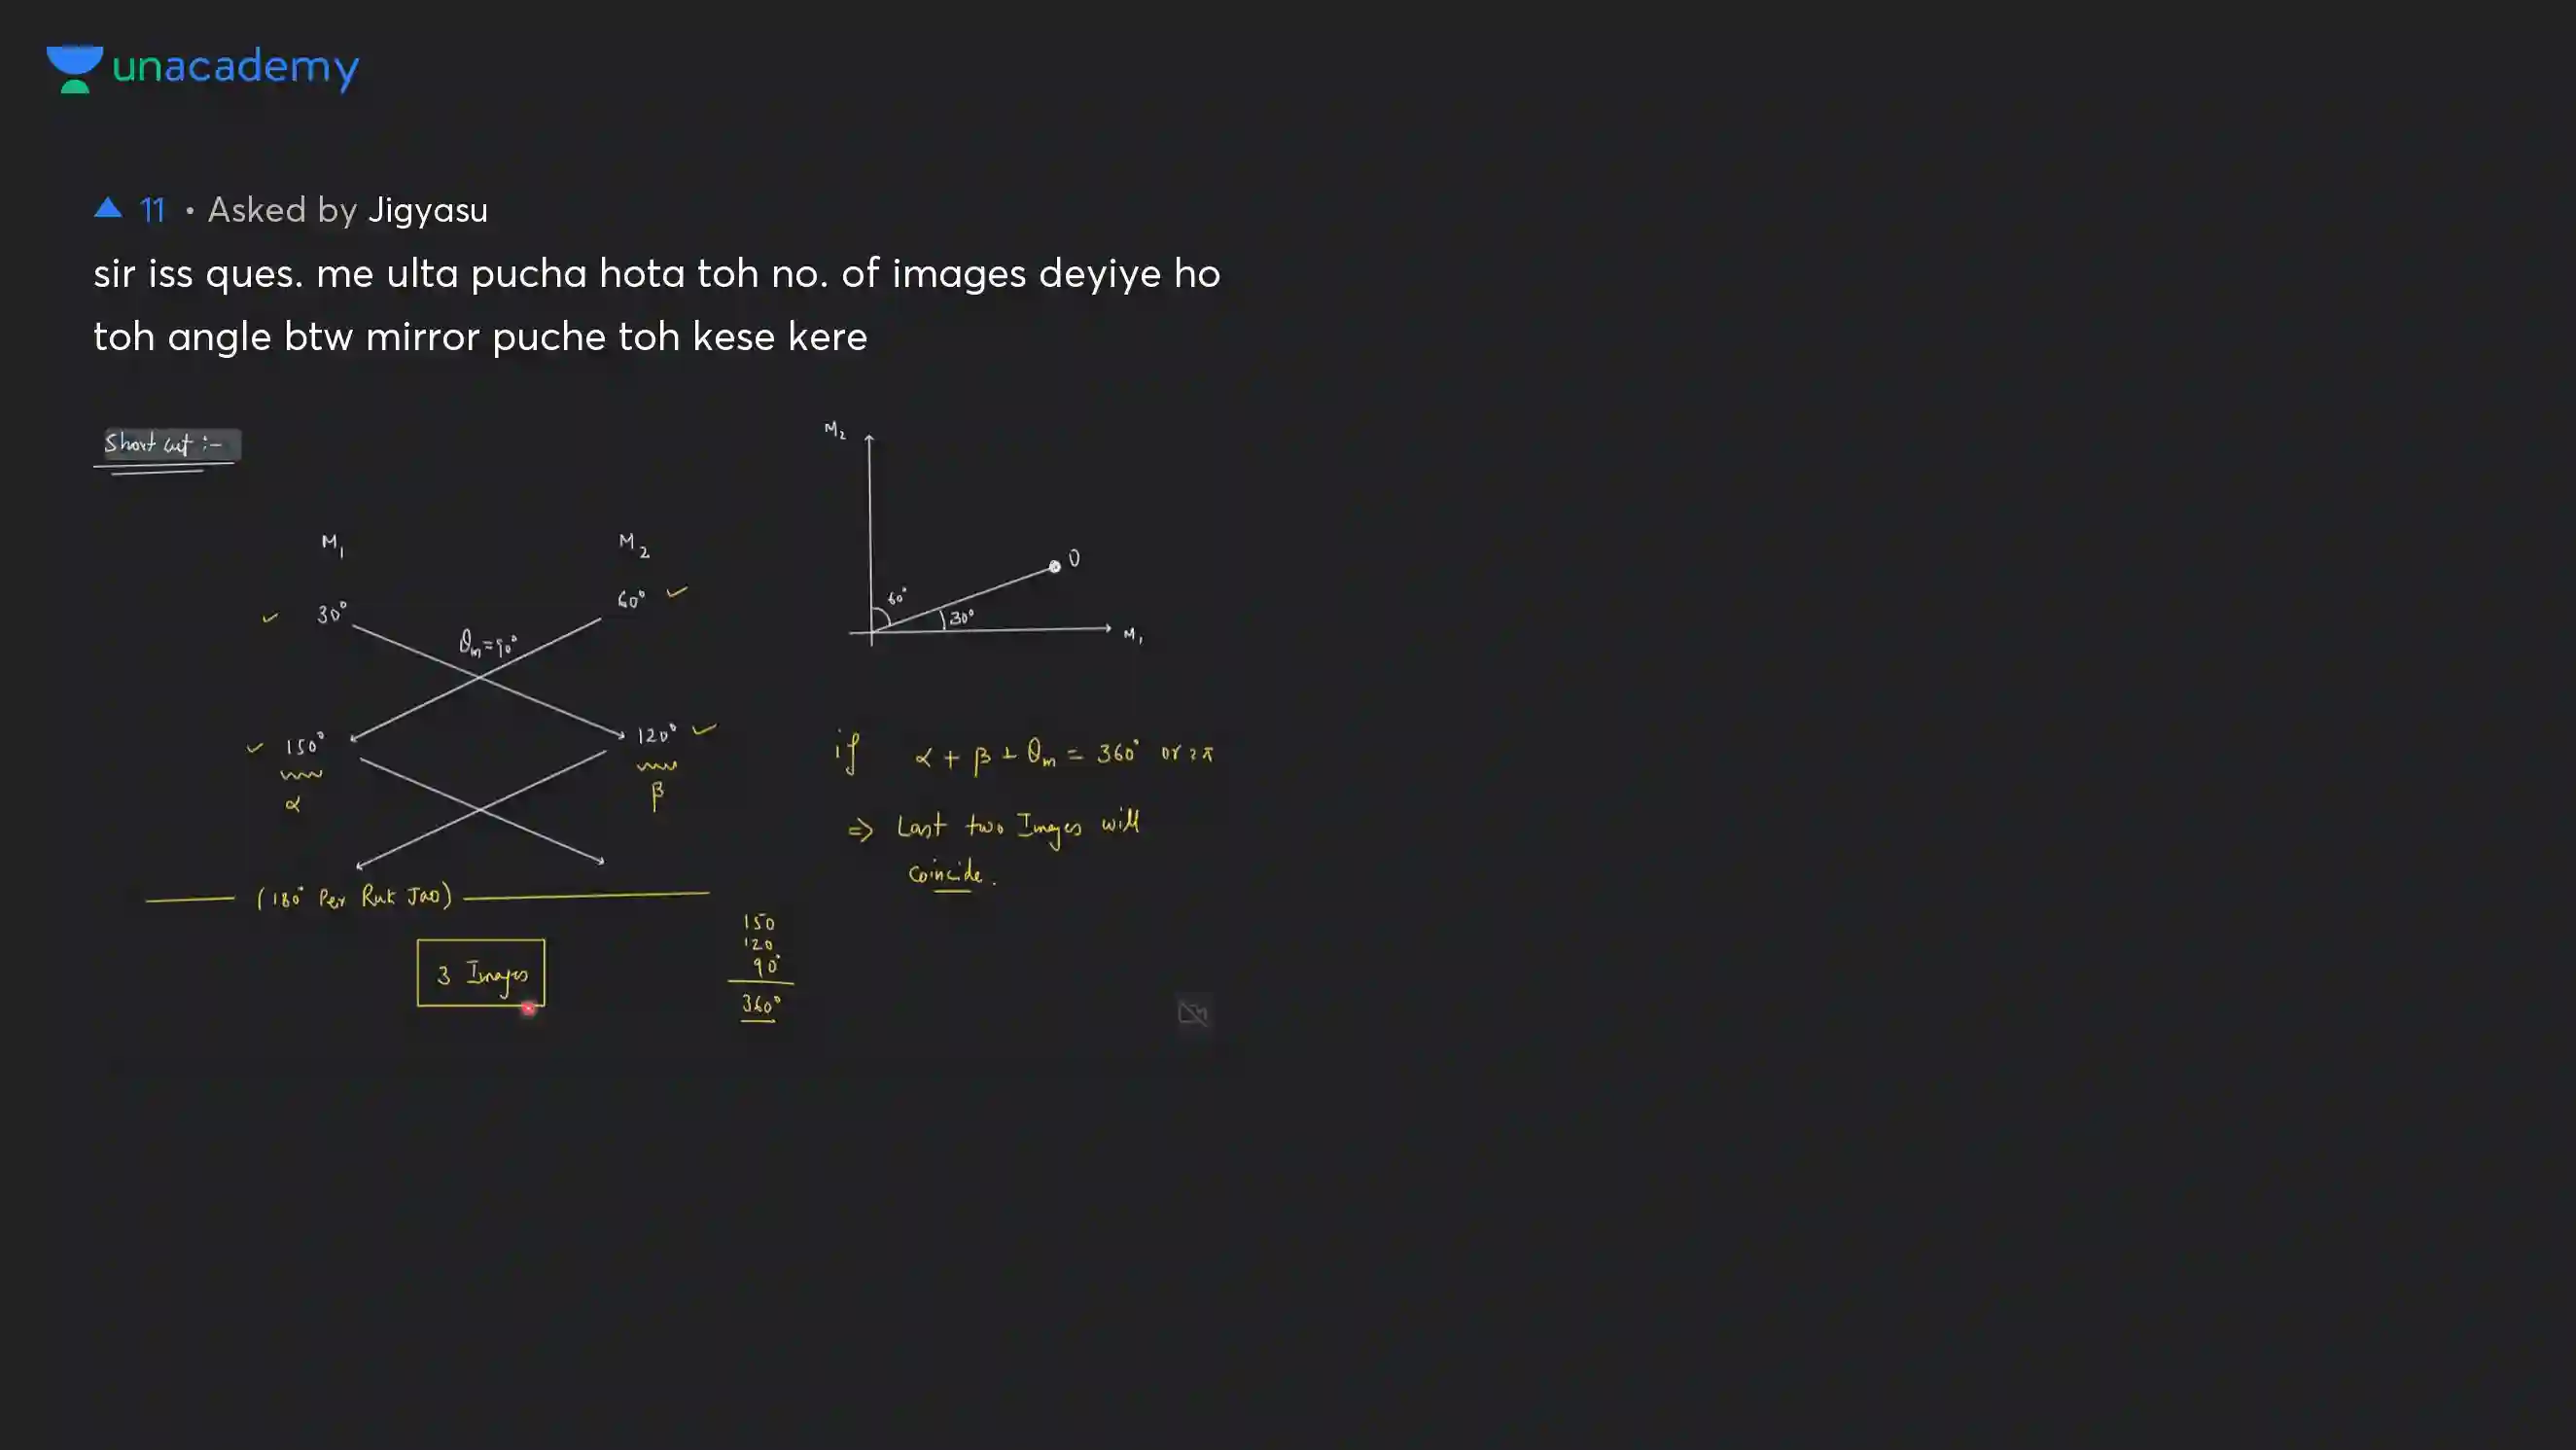 unacademy
▲ 11 • Asked by Jigyasu
sir iss ques. me ulta pucha hota toh no. of images deyiye ho
toh angle btw mirror puche toh kese kere
Short cut :-
M₁ M₂
30° 60°
θₘ=90°
150° 120°
α β
(180° Per Ruk Jao)
3 Images
M₂
O
60°
30°
M₁
if α + β + θₘ = 360° or 2π
⇒ Last two Images will
coincide.
150
120
90°
360°